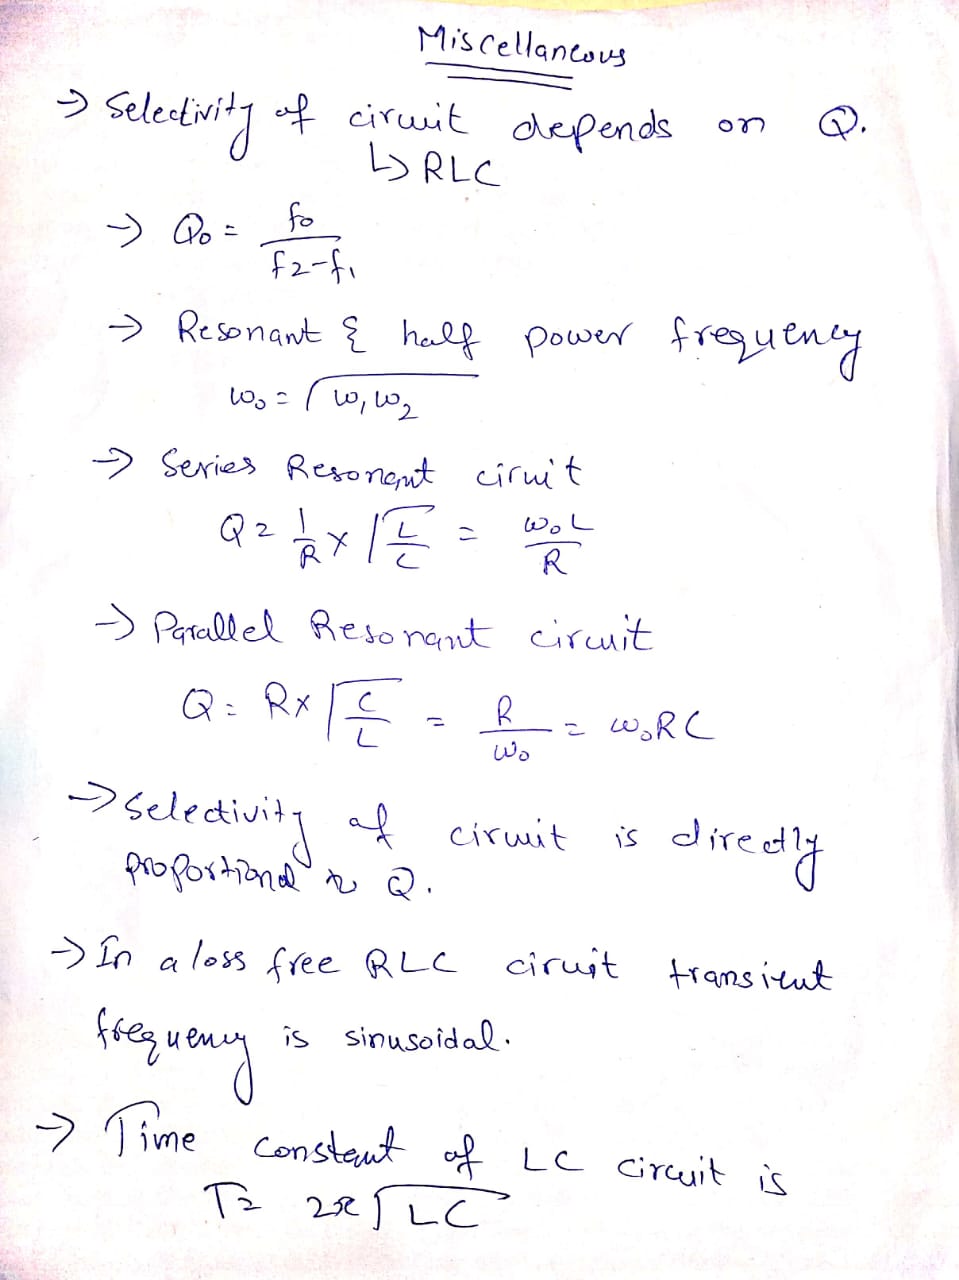 Miscellaneous
→ Selectivity of circuit depends on Q.
↳ RLC
→ Q₀ = f₀ / (f₂-f₁)
→ Resonant & half power frequency
ω₀ = √(ω₁ω₂)
→ Series Resonant ciruit
Q = 1/R × √(L/C) = ω₀L/R
→ Parallel Resonant circuit
Q = R × √(C/L) = R/ω₀ = ω₀RC
→ Selectivity of ciruit is directly
proportional to Q.
→ In a loss free RLC ciruit transient
frequency is sinusoidal.
→ Time constant of LC circuit is
T = 2π√(LC)